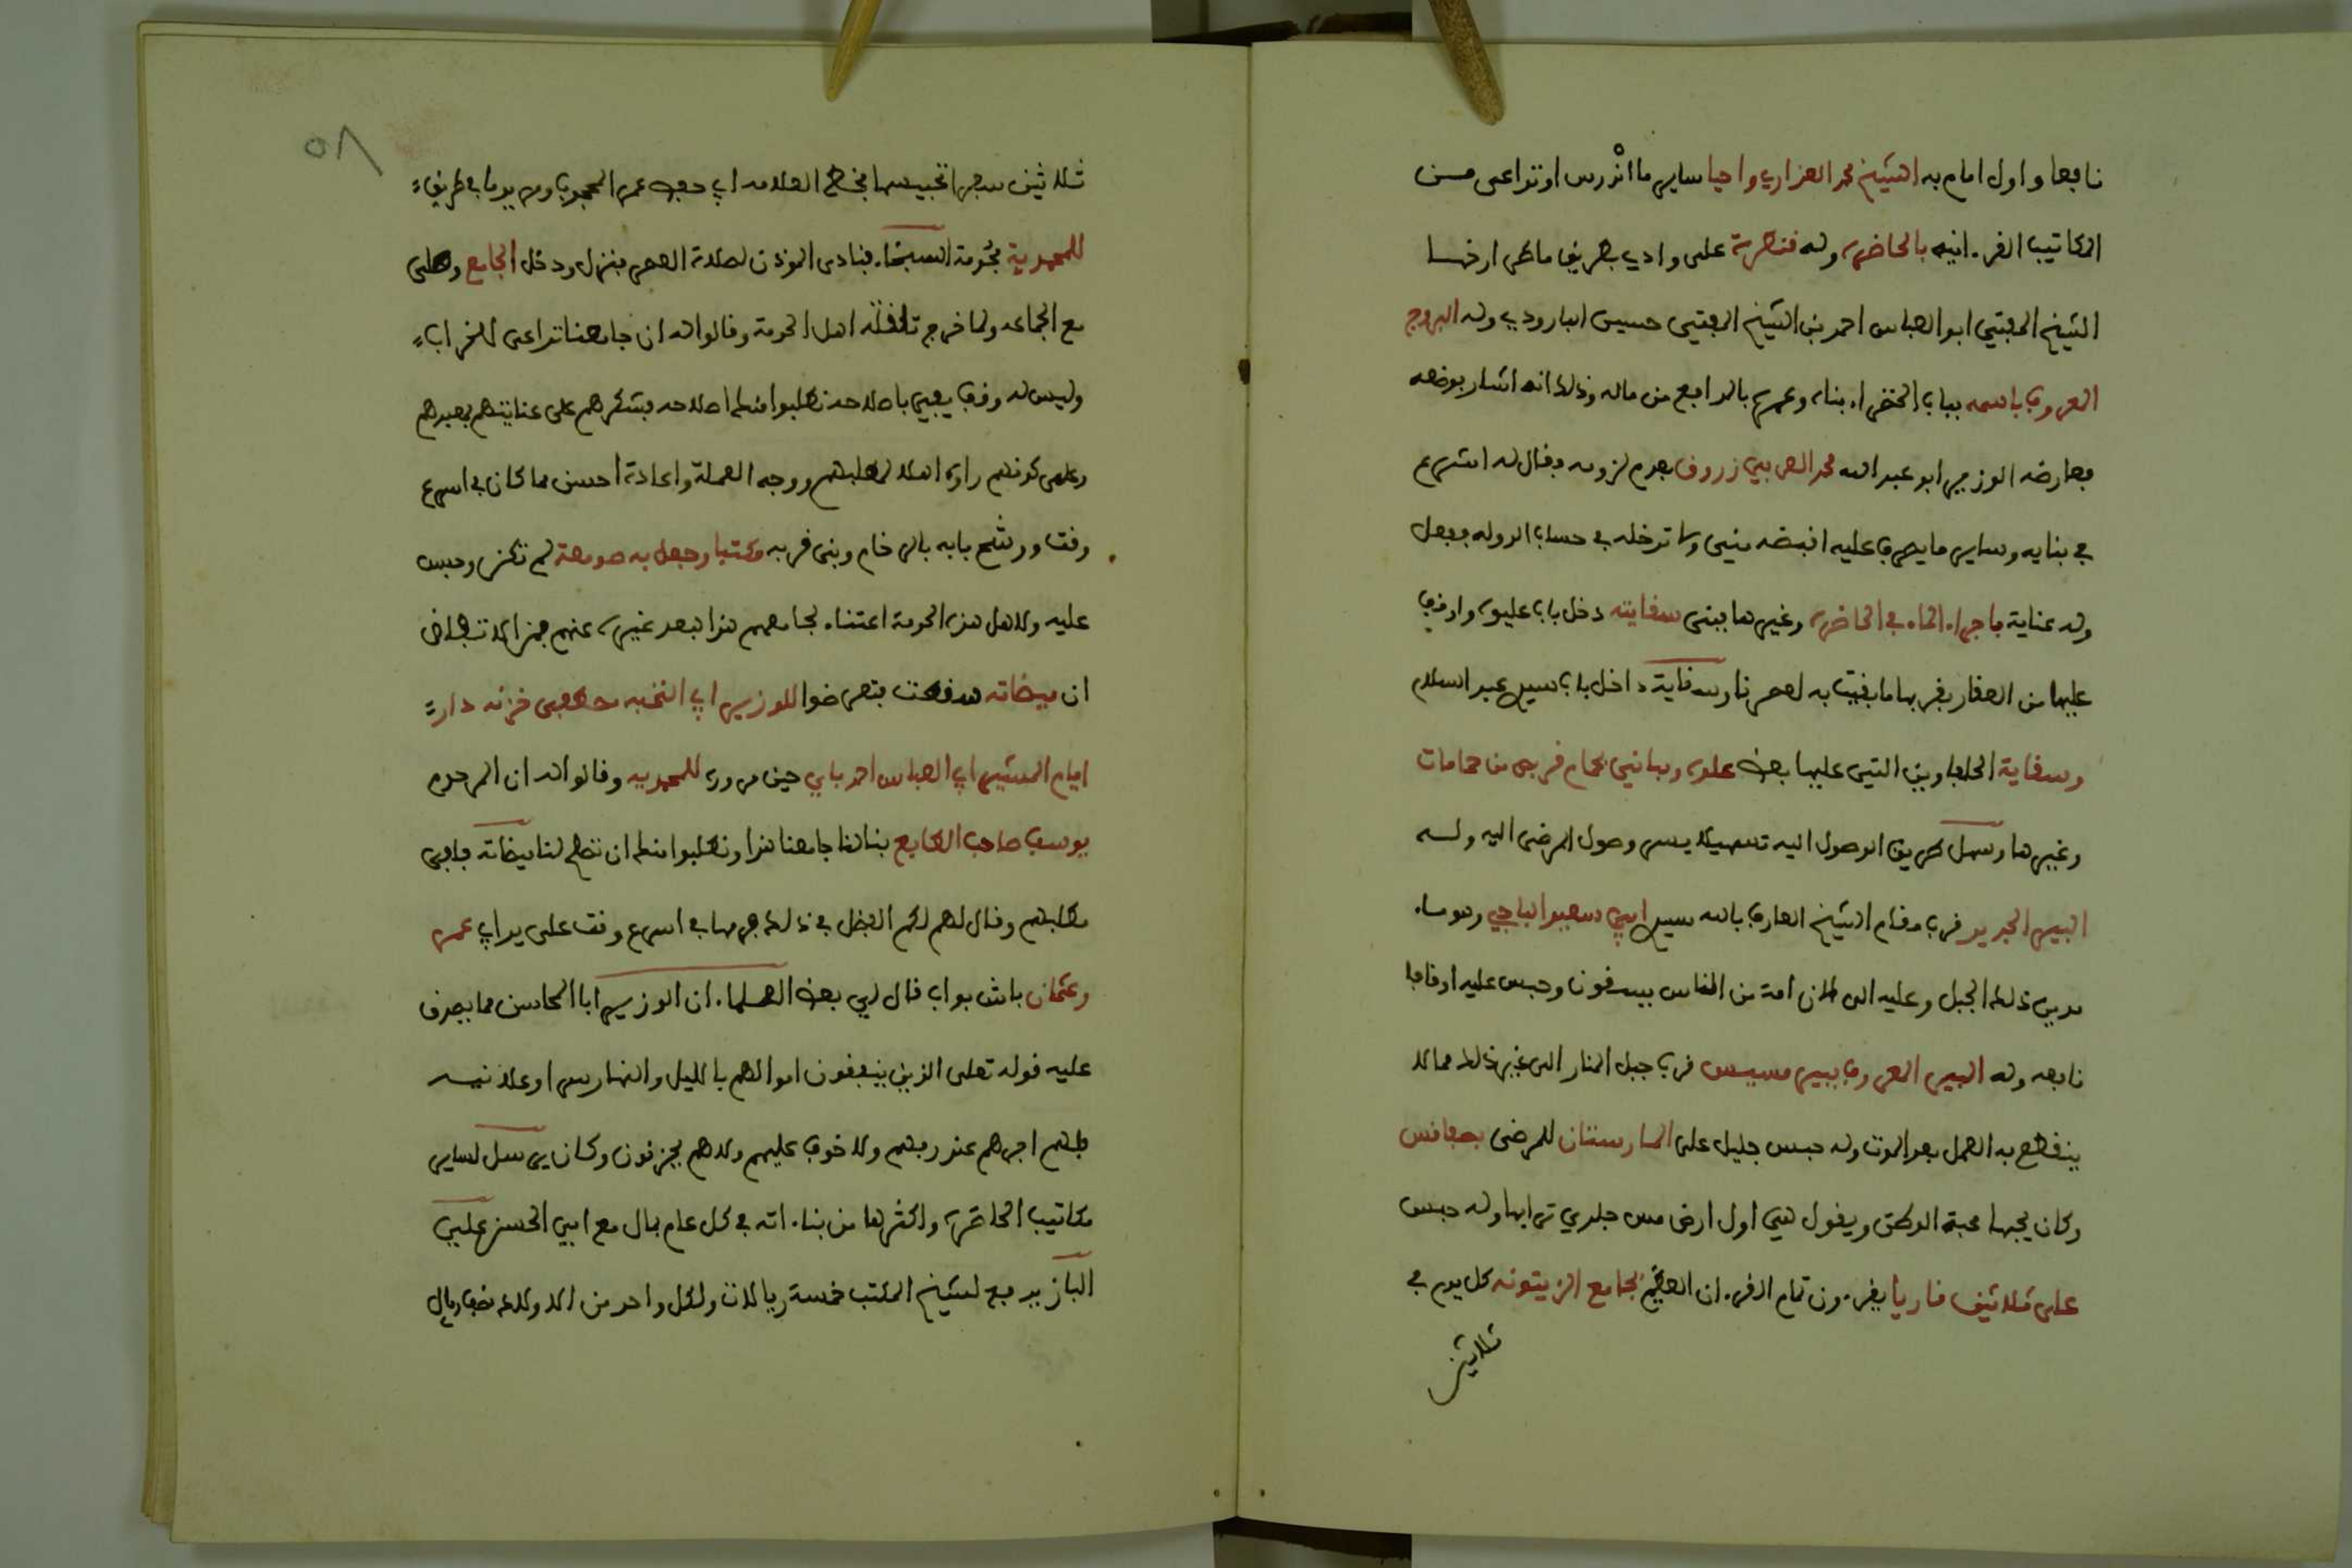 نافعا واول امام به الشيخ محمد الغزاري واحيا ساير ما اندرس او تداعى مـن
المكاتيب القرءانيه بالحاضره وله قنطرة على وادي بطريق ماطر ارخها
الشيخ المفتي ابو العباس احمد بن الشيخ المفتي حسين البارودي وله البروج
المعروف باسمه بباب الخضراء بناه وعمره بالمدافع من ماله وذلك انه اشار بوضعه
فعارضه الوزير ابو عبد الله محمد العربي زروق بعدم لزومه فقال له اشرع
في بنايه وساير ما يصرف عليه اقبضه مني ولا تدخله في حساب الدوله ففعل
وله عناية باجراء الماء في الحاضره وغيرها فبنى سقايته دخل باب عليوه واوقف
عليها من العقار بقربها ما بقيت به لعصرنا وسقاية داخل باب سيدي عبد السلام
وسقاية الحلفاوين التي عليها بعض علوه وبها نبي لحمام قربص من حمامات
وغيرها وسهل طريق الوصول اليه تسهيلا يسر وصول المرضى اليه ولـه
البير الجديد قرب مقام الشيخ العارف بالله سيدي ابي سعيد الباجي وهو ماء
مدين ذلك الجبل وعليه الى الان امة من الناس يسقون وحبس عليه اوقافا
نافعه وله البير المعروف ببير مسيس قرب جبل المنار الى غير ذلك مما لا
ينقطع به العمل بعد الموت وله حبس جليل على المارستان للمرضى بصفاقس
وكان يحبها محبة الوطن ويقول هي اول ارض مس جلدي ترابها وله حبس
على ثلاثين قاريا يقرءون تمام القرءان العظيم بجامع الزيتونه كل يوم في
ثلاثين
٥٨
ثلاثين سفرا تحبيسها بخط العلامه ابي حفص عمر المحجوب ومر يوما في طريقه
للمحمدية بحومة السبخاء فنادى الموذن لصلاة العصر فنزل ودخل الجامع وصلى
مع الجماعه ولما خرج تلقته اهل الحومة وقالوا له ان جامعنا تداعى للخراب
وليس له وقف يفي باصلاحه نطلبوا منك اصلاحه فشكرهم على عنايتهم بمعبدهم
وعلى كونهم راوه اهلا لمطلبهم ووجه العملة واعاده احسن مما كان في اسرع
وقت ورشح بابه بالرخام وبنى قربه مكتبا وجعل به صومعة لم تكن وحبس
عليه ولاهل هذه الحومة اعتناء بجامعهم هذا فبعد غيره عنهم جزا لا تفاض
ان ميضاته سقطت فتعرضوا للوزير ابي النخبه مصطفى خزنه دار
ايام المشير ابي العباس احمد باي حين مروره للمحمديه وقالوا له ان المرحوم
يوسف صاحب الطابع بنا لنا جامعنا هذا ونطلبوا منك ان تصلح لنا ميضاته فاجاب
مطلبهم وقال لهم لكم الفضل في ذلك فرمها في اسرع وقت على يد ابي عمر
وعثمان باش بواب قال لي بعض العلماء ان الوزير ابا المحاسن مما يصدق
عليه قوله تعلى الذين ينفقون اموالهم بالليل والنهار سرا وعلانيـه
فلهم اجرهم عند ربهم ولا خوف عليهم ولا هم يحزنون وكان يرسل لساير
مكاتيب الحاضره واكثرها من بناءاته في كل عام بمال مع ابي الحسن علي
الباز يدفع لشيخ المكتب خمسة ريالات ولكل واحد من الاولاد نصف ريال